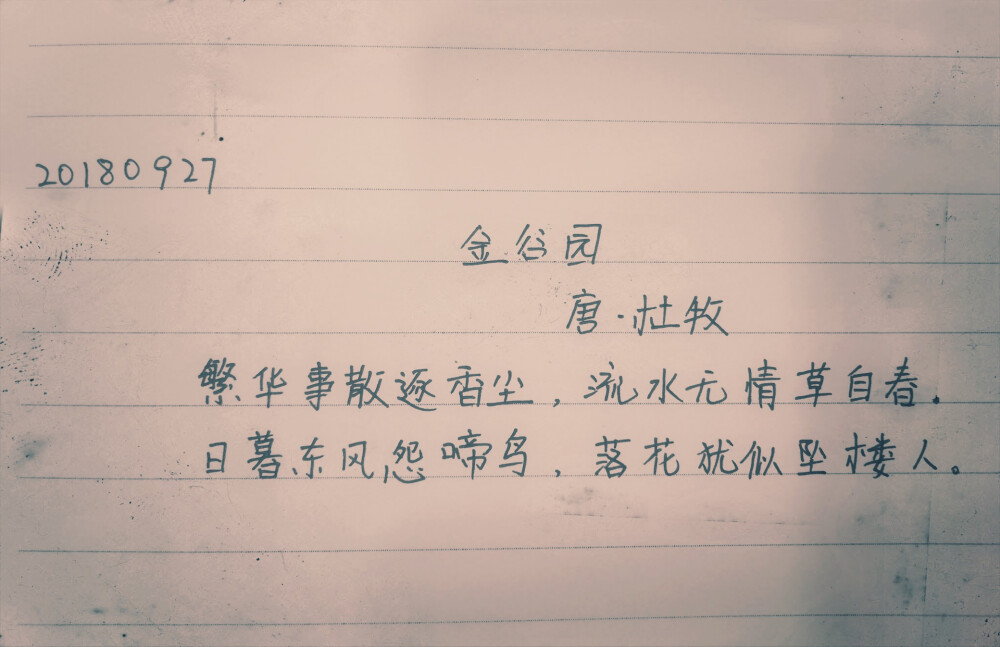 20180927
金谷园
唐·杜牧
繁华事散逐香尘，流水无情草自春.
日暮东风怨啼鸟，落花犹似坠楼人。